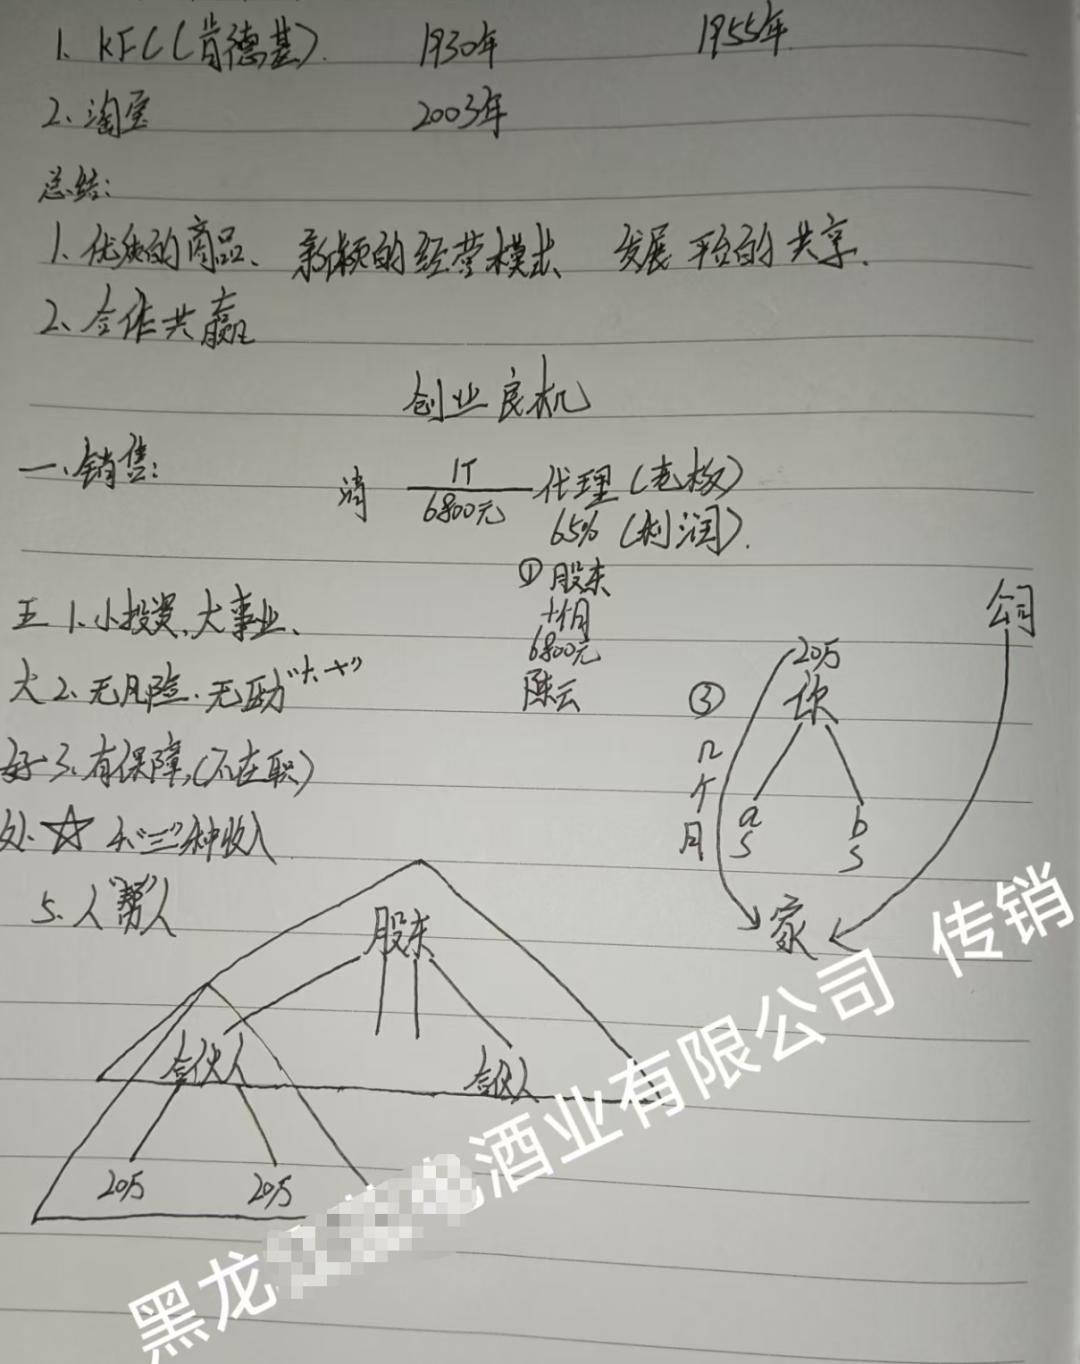 1. KFC(肯德基). 1930年 1955年.
2、淘宝 2003年
总结:
1、优质的商品、新颖的经营模式、发展平台的共享.
2、合作共赢
创业良机
一、销售: 消 1T/6800元 代理(老板)
65%(利润).
①股东
十个月
6800元
陈云
五 1、小投资,大事业、
大 2、无风险.无
好 3、有保障,(不在职)
处、☆ 4、"三"种收入
5、人"帮"人
公司
20万
你
③
几个月
a
b
5
5
家
股东
合伙人 合伙人
20万 20万
黑龙 酒业有限公司 传销